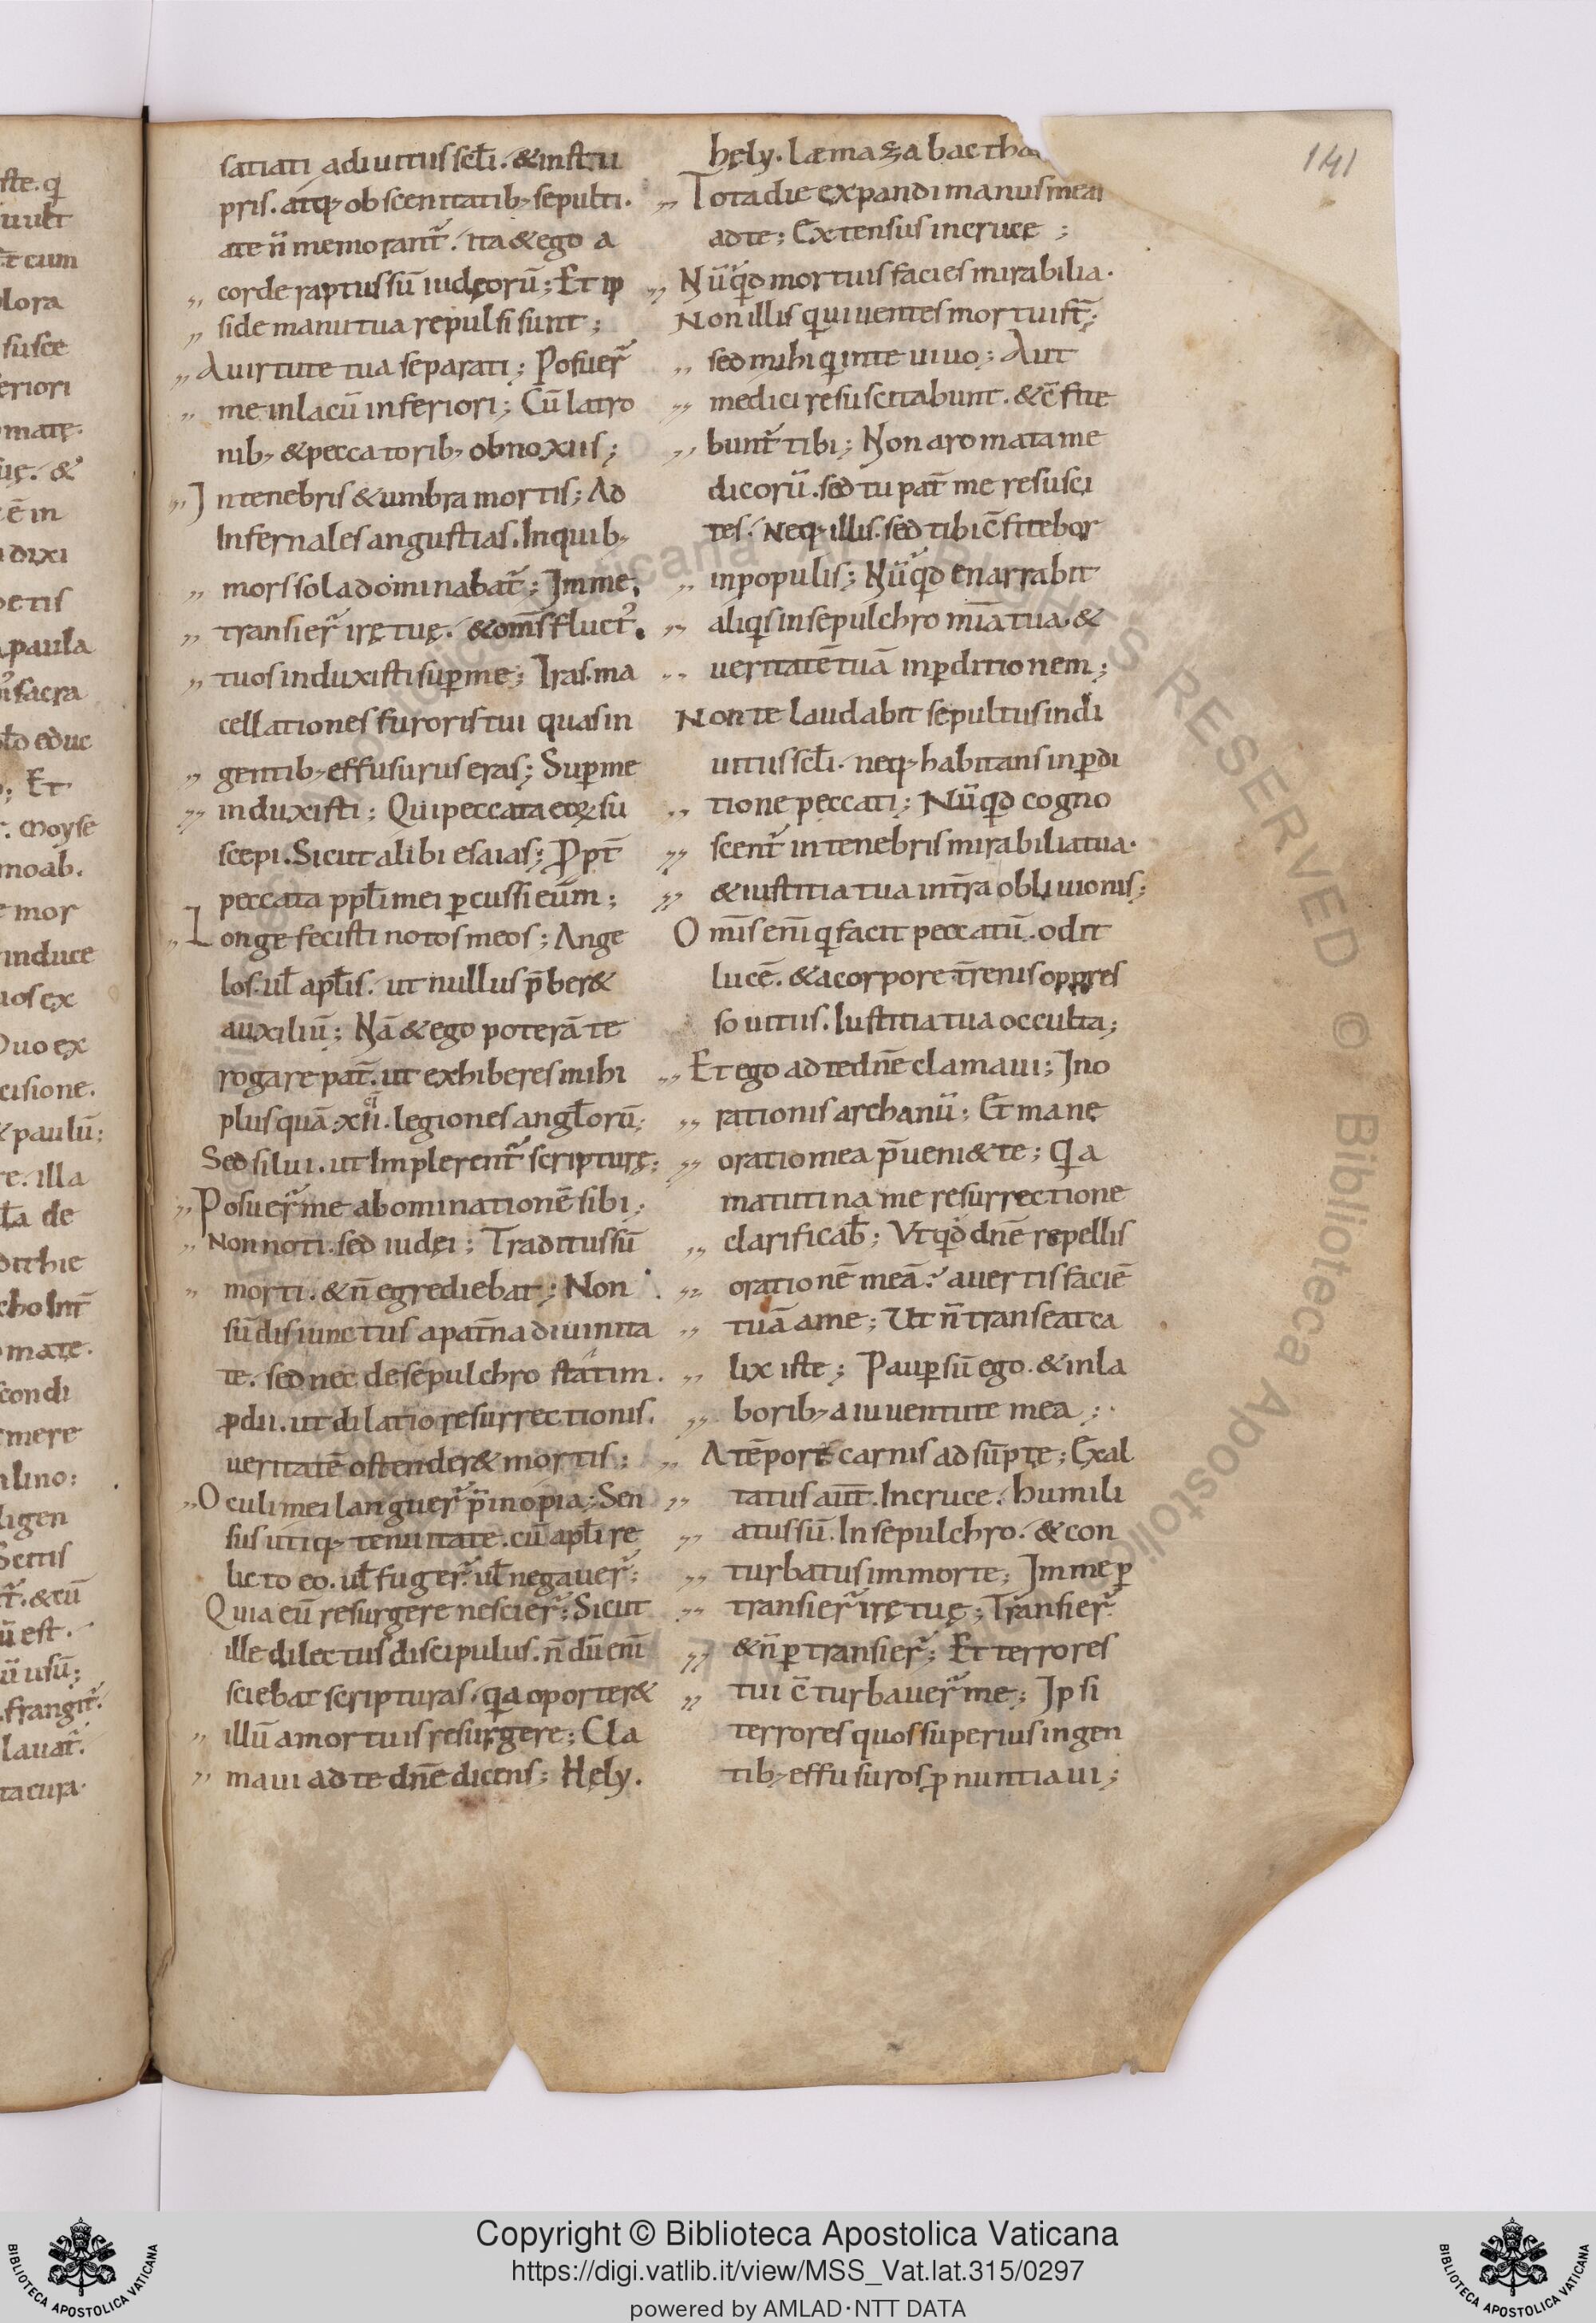 141
satiati a diuitus scɫi. & instu
pris. atq; obscenitatib; sepulti.
a te n̄ memorant᷑. ita & ego a
„ corde raptus sū iudęorū; Et ip
„ si de manu tua repulsi sunt;
„ A uirtute tua separati; Posuer᷑
„ me in lacū inferiori; Cū latro
nib; & peccatorib; obnoxiis;
„ In tenebris & umbra mortis; Ad
Infernales angustias. In quib;
„ mors sola dominabat᷑; Im me.
„ transier᷑ irę tuę. & om̄s fluct᷒.
„ tuos induxisti sup me; Iras. ma
cellationes furoris tui quas in
„ gentib; effusurus eras; Sup me
„ induxisti; Qui peccata eoꝝ su
scepi. Sicut alibi esaias; Ppt̄
peccata ppɫi mei ꝑcussi eum;
„ Longe fecisti notos meos; Ange
los. uɫ apɫis. ut nullus p̄ber&
auxiliū; Nā & ego poterā te
rogare pat̄. ut exhiberes mihi
plus quā. xii. legiones angɫorū;
Sed silui. ut Implerent᷑ scripturę;
„ Posuer᷑ me abominationē sibi;
„ Non noti. sed iudęi; Traditus sū
„ morti. & n̄ egrediebar; Non
sū disiunctus a pat̄na diuinita
te. sed nec de sepulchro statim.
ꝓdii. ut dilatio resurrectionis.
ueritatē ostender& mortis;
„ Oculi mei languer᷑ p̄ inopia; Sen
sus utiq; tenuitate. cū apɫi re
licto eo. uɫ fuger᷑. uɫ negauer᷑;
Quia eū resurgere nescier᷑; Sicut
ille dilectus discipulus. n̄dū eni̅
sciebat scripturas. qa oporter&
„ illū a mortuis resurgere; Cla
„ maui ad te dn̄e dicens; Hęly.
hęly. Læma zabactha
„ Tota die expandi manus meas
ad te; Extensus in cruce;
„ Nūqd mortuis facies mirabilia.
Non illis qui uiuentes mortui st᷑;
„ sed mihi q in te uiuo; Aut
„ medici resuscitabunt. & c̄fite
„ bunt᷑ tibi; Non aromata me
dicorū. sed tu pat̄ me resusci
tes. Neq; illis. sed tibi c̄fitebor
„ in populis; Nūqd enarrabit
„ aliqs in sepulchro mi̅a tua. &
„ ueritatē tuā in ꝑditionem;
Non te laudabit sepultus in di
uitus scɫi. neq; habitans in ꝑdi
„ tione peccati; Nūqd cogno
„ scent᷑ in tenebris mirabilia tua.
„ & iustitia tua in t̄ra obliuionis;
Om̄is eni̅ q facit peccatū. odit
lucē. & a corpore t̄renis oppres
so uitus. Iustitia tua occulta;
„ Et ego ad te dn̄e clamaui; In o
„ rationis archanū; Et mane
„ oratio mea p̄ueni& te; Qa
matutina me resurrectione
„ clarificab̄; Vtqd dn̄e repellis
„ orationē meā? auertis faciē
„ tuā a me; Ut n̄ transeat ca
„ lix iste; Paup sū ego. & in la
„ borib; a iuuentute mea;
„ A tēpore carnis adsūptę; Exal
„ tatus aut̄. In cruce. humili
„ atus sū. In sepulchro. & con
„ turbatus im morte; Im me ꝑ
„ transier᷑ irę tuę; Transier᷑.
„ & n̄ ꝑtransier᷑; Et terrores
„ tui c̄turbauer᷑ me; Ipsi
terrores quos superius in gen
tib; effusuros ꝓnuntiaui;
Copyright © Biblioteca Apostolica Vaticana
https://digi.vatlib.it/view/MSS_Vat.lat.315/0297
powered by AMLAD·NTT DATA